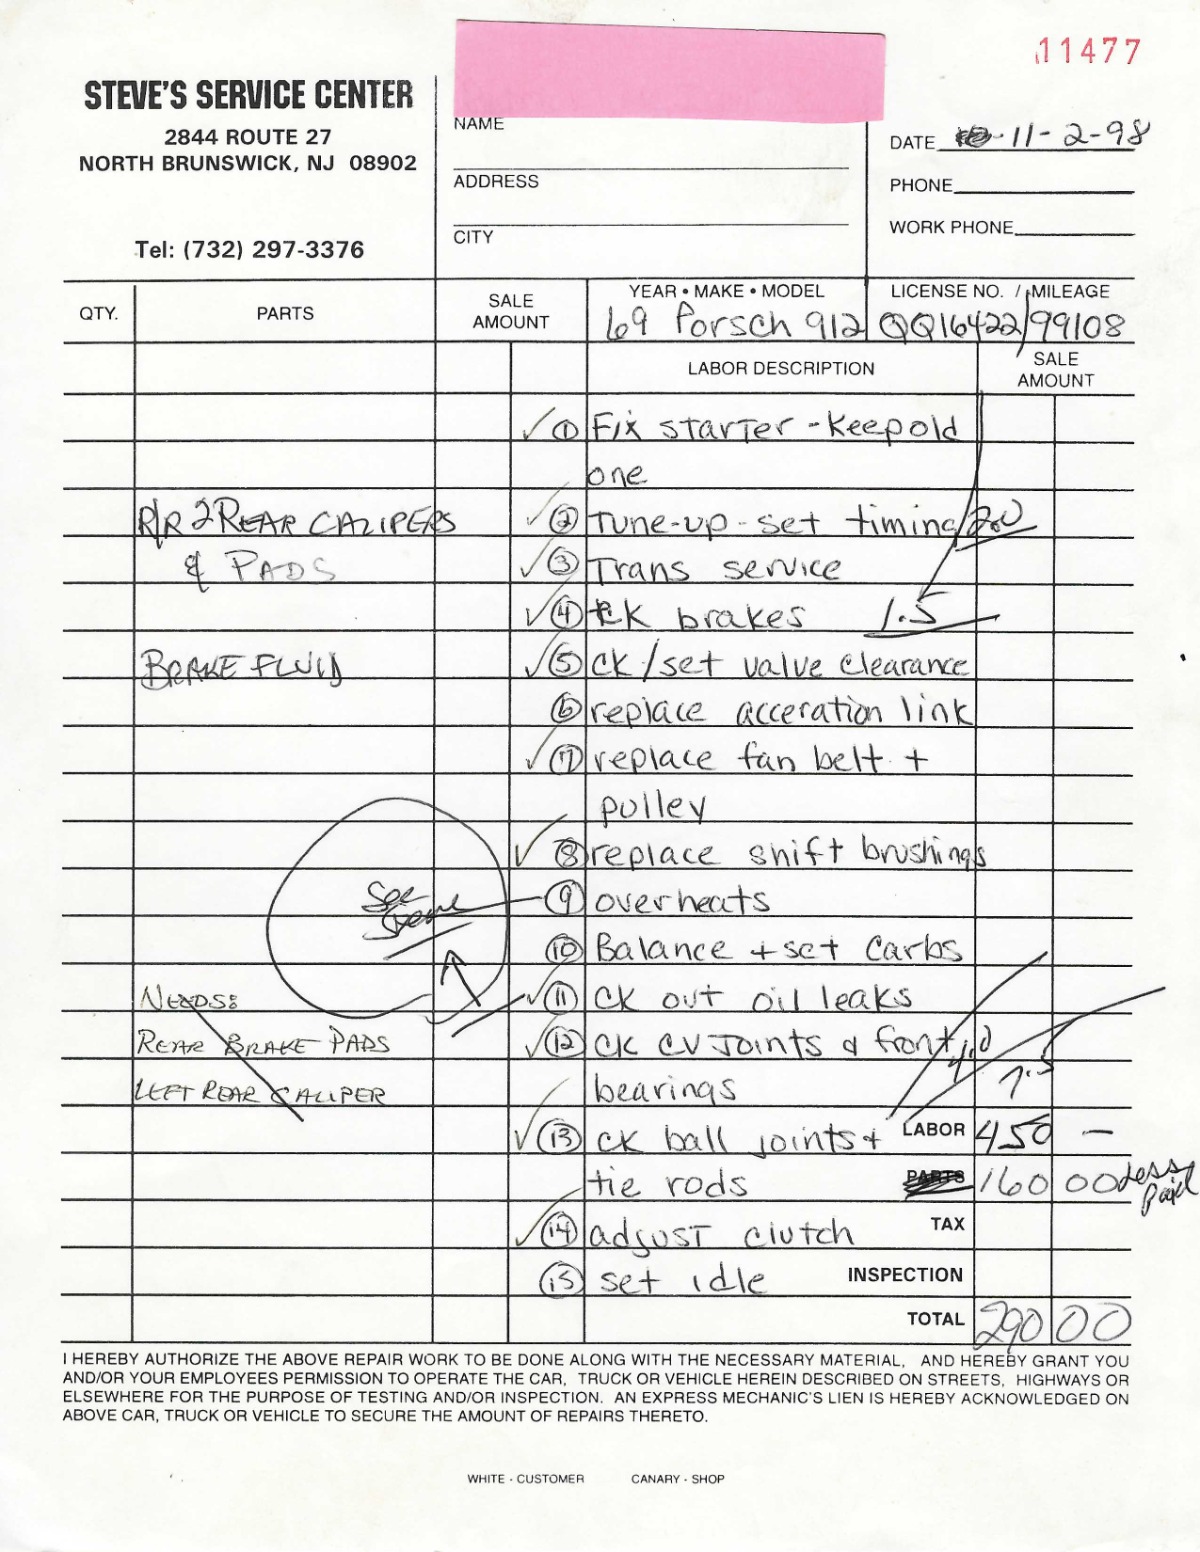 11477
STEVE'S SERVICE CENTER
2844 ROUTE 27
NORTH BRUNSWICK, NJ 08902
Tel: (732) 297-3376
NAME
ADDRESS
CITY
DATE 11-2-98
PHONE
WORK PHONE
QTY. PARTS SALE AMOUNT
YEAR • MAKE • MODEL
69 Porsch 912
LICENSE NO. / MILEAGE
QQ16422/99108
LABOR DESCRIPTION SALE AMOUNT
① Fix starter - Keep old
one
R/R 2 REAR CALIPERS
② Tune-up - set timing / 2.0
& PADS
③ Trans service
④ CK brakes 1.5
BRAKE FLUID
⑤ CK/set valve clearance
⑥ replace acceration link
⑦ replace fan belt +
pulley
⑧ replace shift brushings
See Steve
⑨ overheats
⑩ Balance + set Carbs
NEEDS:
⑪ CK out oil leaks
REAR BRAKE PADS
⑫ CK CV Joints & front
bearings
LEFT REAR CALIPER
7.5
⑬ CK ball joints +
LABOR 450 —
tie rods
PARTS 160 00 Less paid
⑭ adjust clutch
TAX
⑮ set idle
INSPECTION
TOTAL 290 00
I HEREBY AUTHORIZE THE ABOVE REPAIR WORK TO BE DONE ALONG WITH THE NECESSARY MATERIAL, AND HEREBY GRANT YOU
AND/OR YOUR EMPLOYEES PERMISSION TO OPERATE THE CAR, TRUCK OR VEHICLE HEREIN DESCRIBED ON STREETS, HIGHWAYS OR
ELSEWHERE FOR THE PURPOSE OF TESTING AND/OR INSPECTION. AN EXPRESS MECHANIC'S LIEN IS HEREBY ACKNOWLEDGED ON
ABOVE CAR, TRUCK OR VEHICLE TO SECURE THE AMOUNT OF REPAIRS THERETO.
WHITE - CUSTOMER CANARY - SHOP